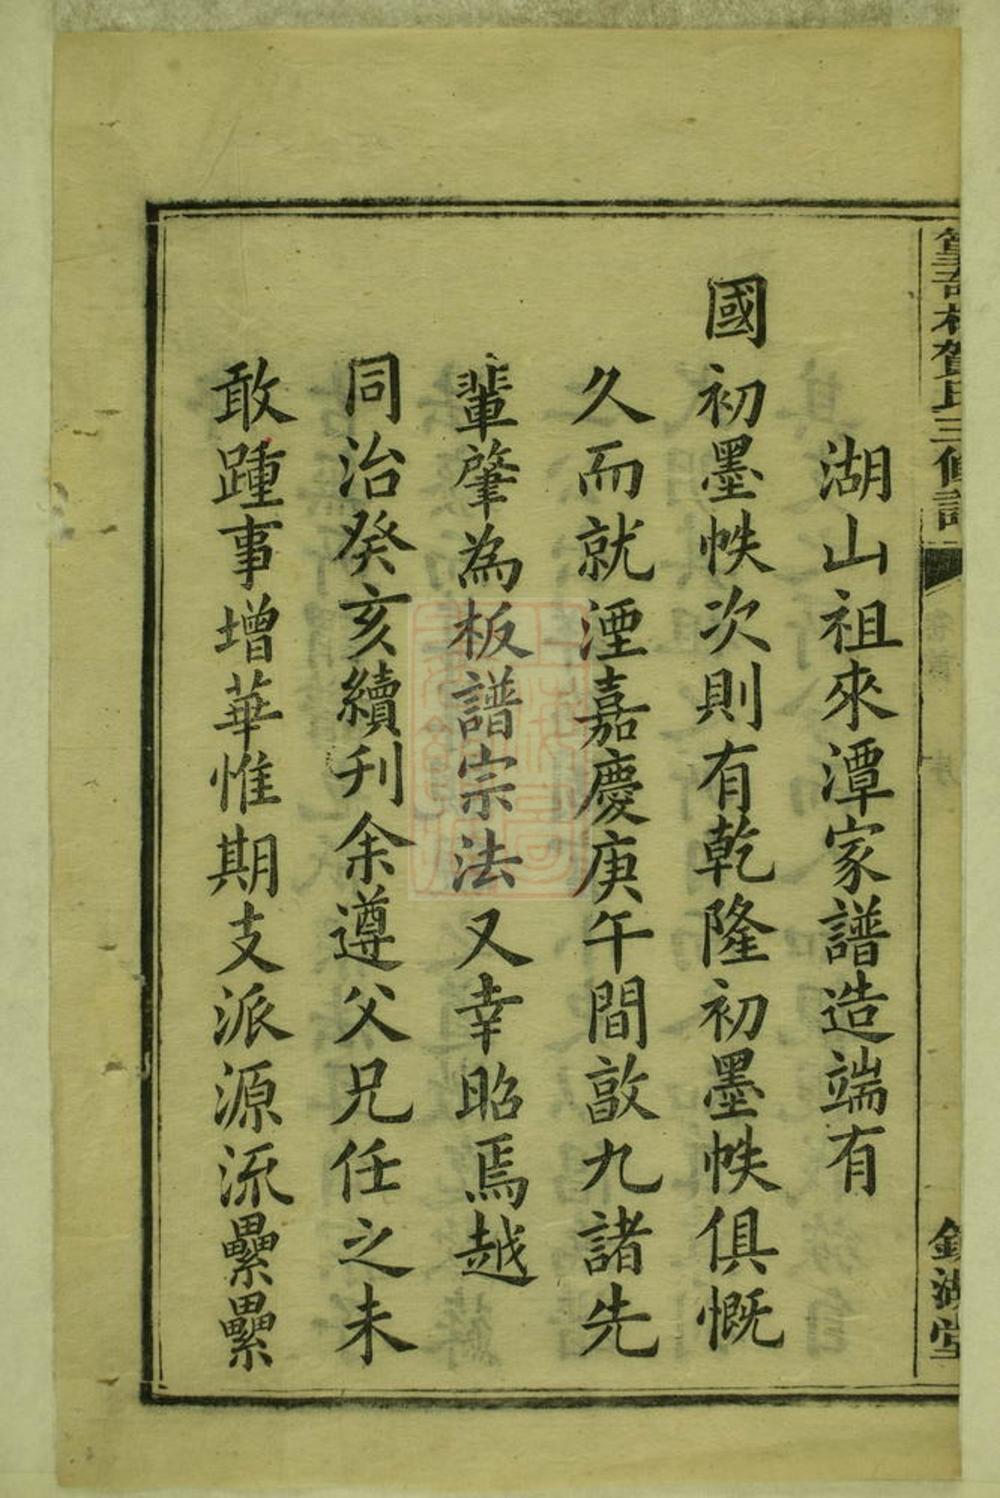 賀氏三修譜
湖堂
湖山祖來潭家譜造端有
國初墨帙次則有乾隆初墨帙俱慨
久而就湮嘉慶庚午間敿九諸先
輩肇為板譜宗法又幸昭焉越
同治癸亥續刊余遵父兄任之未
敢踵事增華惟期支派源流纍纍